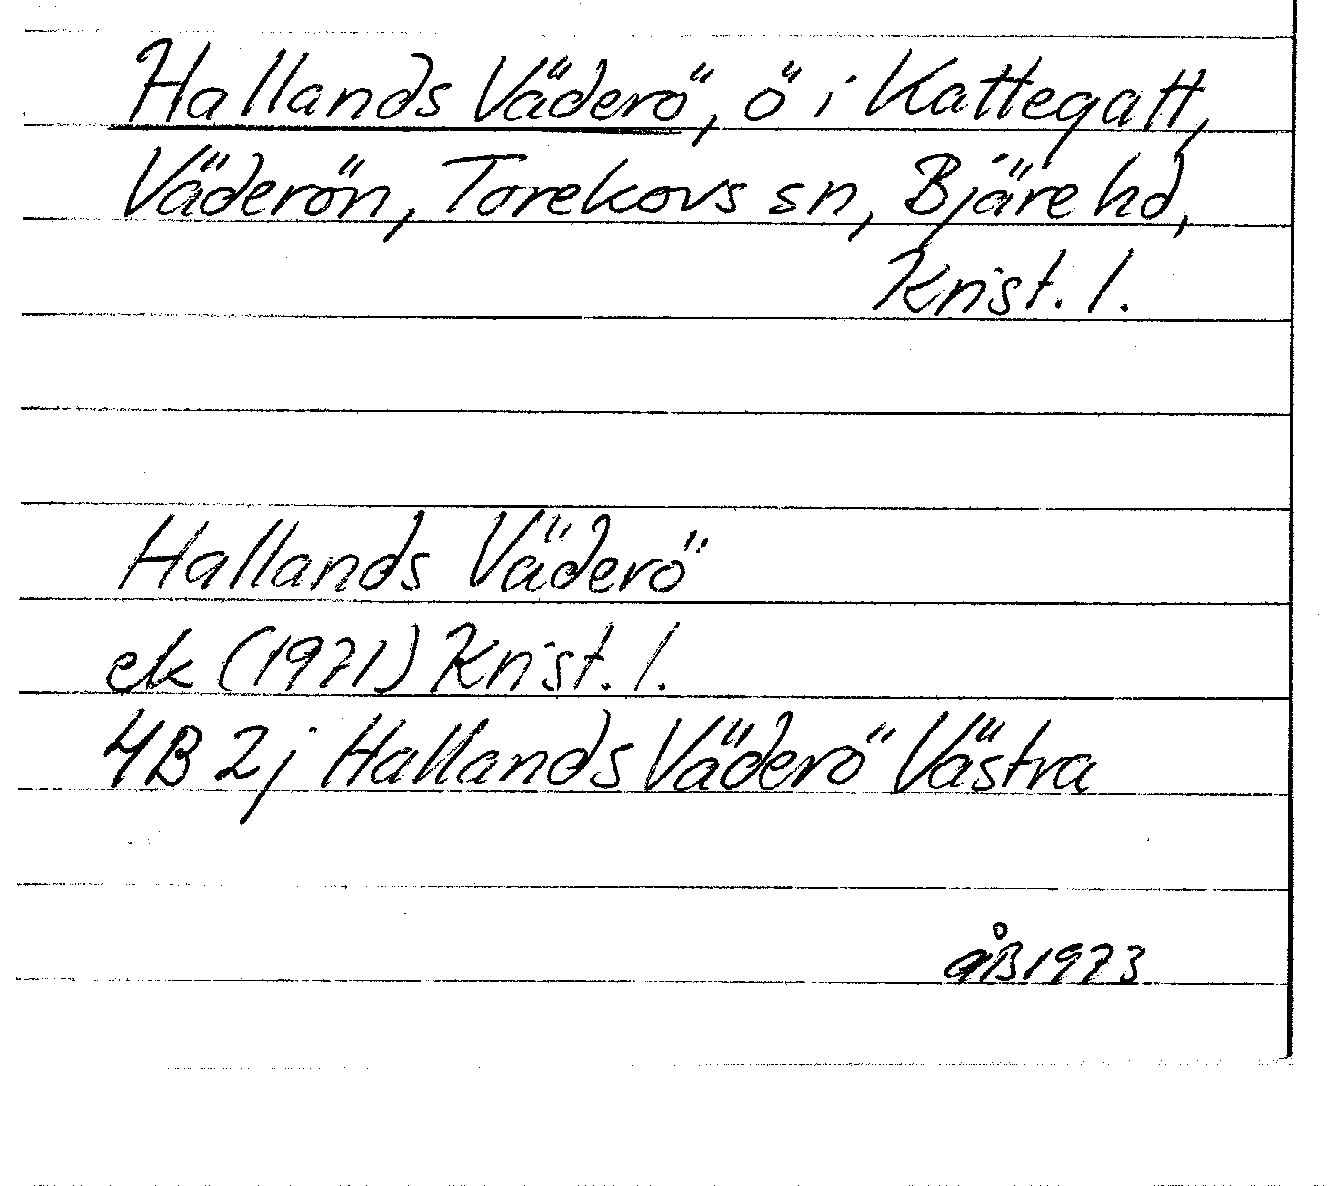 Hallands Väderö, ö i Kattegatt,
Väderön, Torekovs sn, Bjäre hd,
Krist. l.
Hallands Väderö
ek (1971) Krist. l.
4B 2j Hallands Väderö Västra
åB 1973